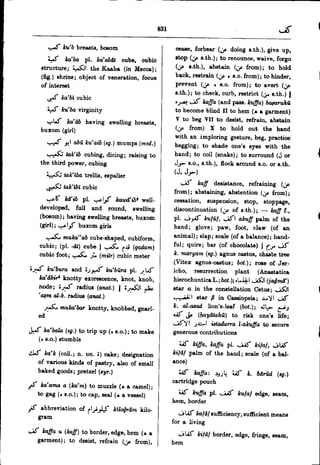 831
كف
كعب ku'b breasts, bosom
كعبة ka'ba pl. ka'abāt cube, cubic
structure; الكعبة the Kaaba (in Mecca);
(fig.) shrine; object of veneration, focus
of interest
كعبي ka'bī cubic
كعبة ku'ba virginity
كعاب ka'āb having swelling breasts,
buxom (girl)
ابو كعيب abū ku'aib (eg.) mumps (med.)
تكعيب tak'īb cubing, dicing; raising to
the third power, cubing
تكعيبة tak'ība trellis, espalier
تكعيبي tak'ībī cubic
كاعب kā'ib pl. كواعب kawā'ib² well-
developed, full and round, swelling
(bosom); having swelling breasts, buxom
(girl); كواعب buxom girls
مكعب muka''ab cube-shaped, cubiform,
cubic; (pl. -āt) cube | قدم مكعب (qadam)
cubic foot; متر مكعب (mitr) cubic meter
كعبرة ku'bura and كعبورة ku'būra pl. كعابر
ka'ābir² knotty excrescence, knot, knob,
node; كعبرة radius (anat.) | عظم الكعبرة
'aẓm al-k. radius (anat.)
مكعبر muka'bar knotty, knobbed, gnarl-
ed
كعبل ka'bala (eg.) to trip up (ه s.o.); to make
(ه s.o.) stumble
كعك ka'k (coll.; n. un. ة) cake; designation
of various kinds of pastry, also of small
baked goods; pretzel (syr.)
كعم ka'ama a (ka'm) to muzzle (ه a camel);
to gag (ه s.o.); to cap, seal (ه a vessel)
كغ abbreviation of كيلوغرام kīloḡrām kilo-
gram
كف kaffa u (kaff) to border, edge, hem (ه a
garment); to desist, refrain (عن from),
cease, forbear (عن doing s.th.), give up,
stop (عن s.th.); to renounce, waive, forgo
(عن s.th.), abstain (عن from); to hold
back, restrain (عن ه s.o. from); to hinder,
prevent (عن ه s.o. from); to avert (عن
s.th.); to check, curb, restrict (من s.th.) |
كف بصره kaffa (and pass. kuffa) baṣaruhū
to become blind II to hem (ه a garment)
V to beg VII to desist, refrain, abstain
(عن from) X to hold out the hand
with an imploring gesture, beg, practice
begging; to shade one's eyes with the
hand; to coil (snake); to surround (ل or
حول s.o., s.th.), flock around s.o. or s.th.
(ل, حول)
كف kaff desistance, refraining (عن
from); abstaining, abstention (عن from);
cessation, suspension, stop, stoppage,
discontinuation (عن of s.th.); — kaff f.,
pl. كفوف kufūf, اكف akuff palm of the
hand; glove; paw, foot, claw (of an
animal); slap; scale (of a balance); hand-
ful; quire; bar (of chocolate) | كف مريم
k. maryam (eg.) agnus castus, chaste tree
(Vitex agnus-castus; bot.); rose of Jer-
icho, resurrection plant (Anastatica
hierochuntica L.; bot.); الكف الجذماء (jaḏmā')
star α in the constellation Cetus; الكف
الخضيب star β in Cassiopeia; كف الاسد
k. al-asad lion's-leaf (bot.); وضع حياته
على كفه (ḥayātahū) to risk one's life;
استدر الاكف istadarra l-akuffa to secure
generous contributions
كفة kiffa, kaffa pl. كفف kifaf, كفاف
kifāf palm of the hand; scale (of a bal-
ance)
كفة kaffa: كفة بارود k. bārūd (eg.)
cartridge pouch
كفة kuffa pl. كفف kufaf edge, seam,
hem, border
كفاف kafāf sufficiency, sufficient means
for a living
كفاف kifāf border, edge, fringe, seam,
hem